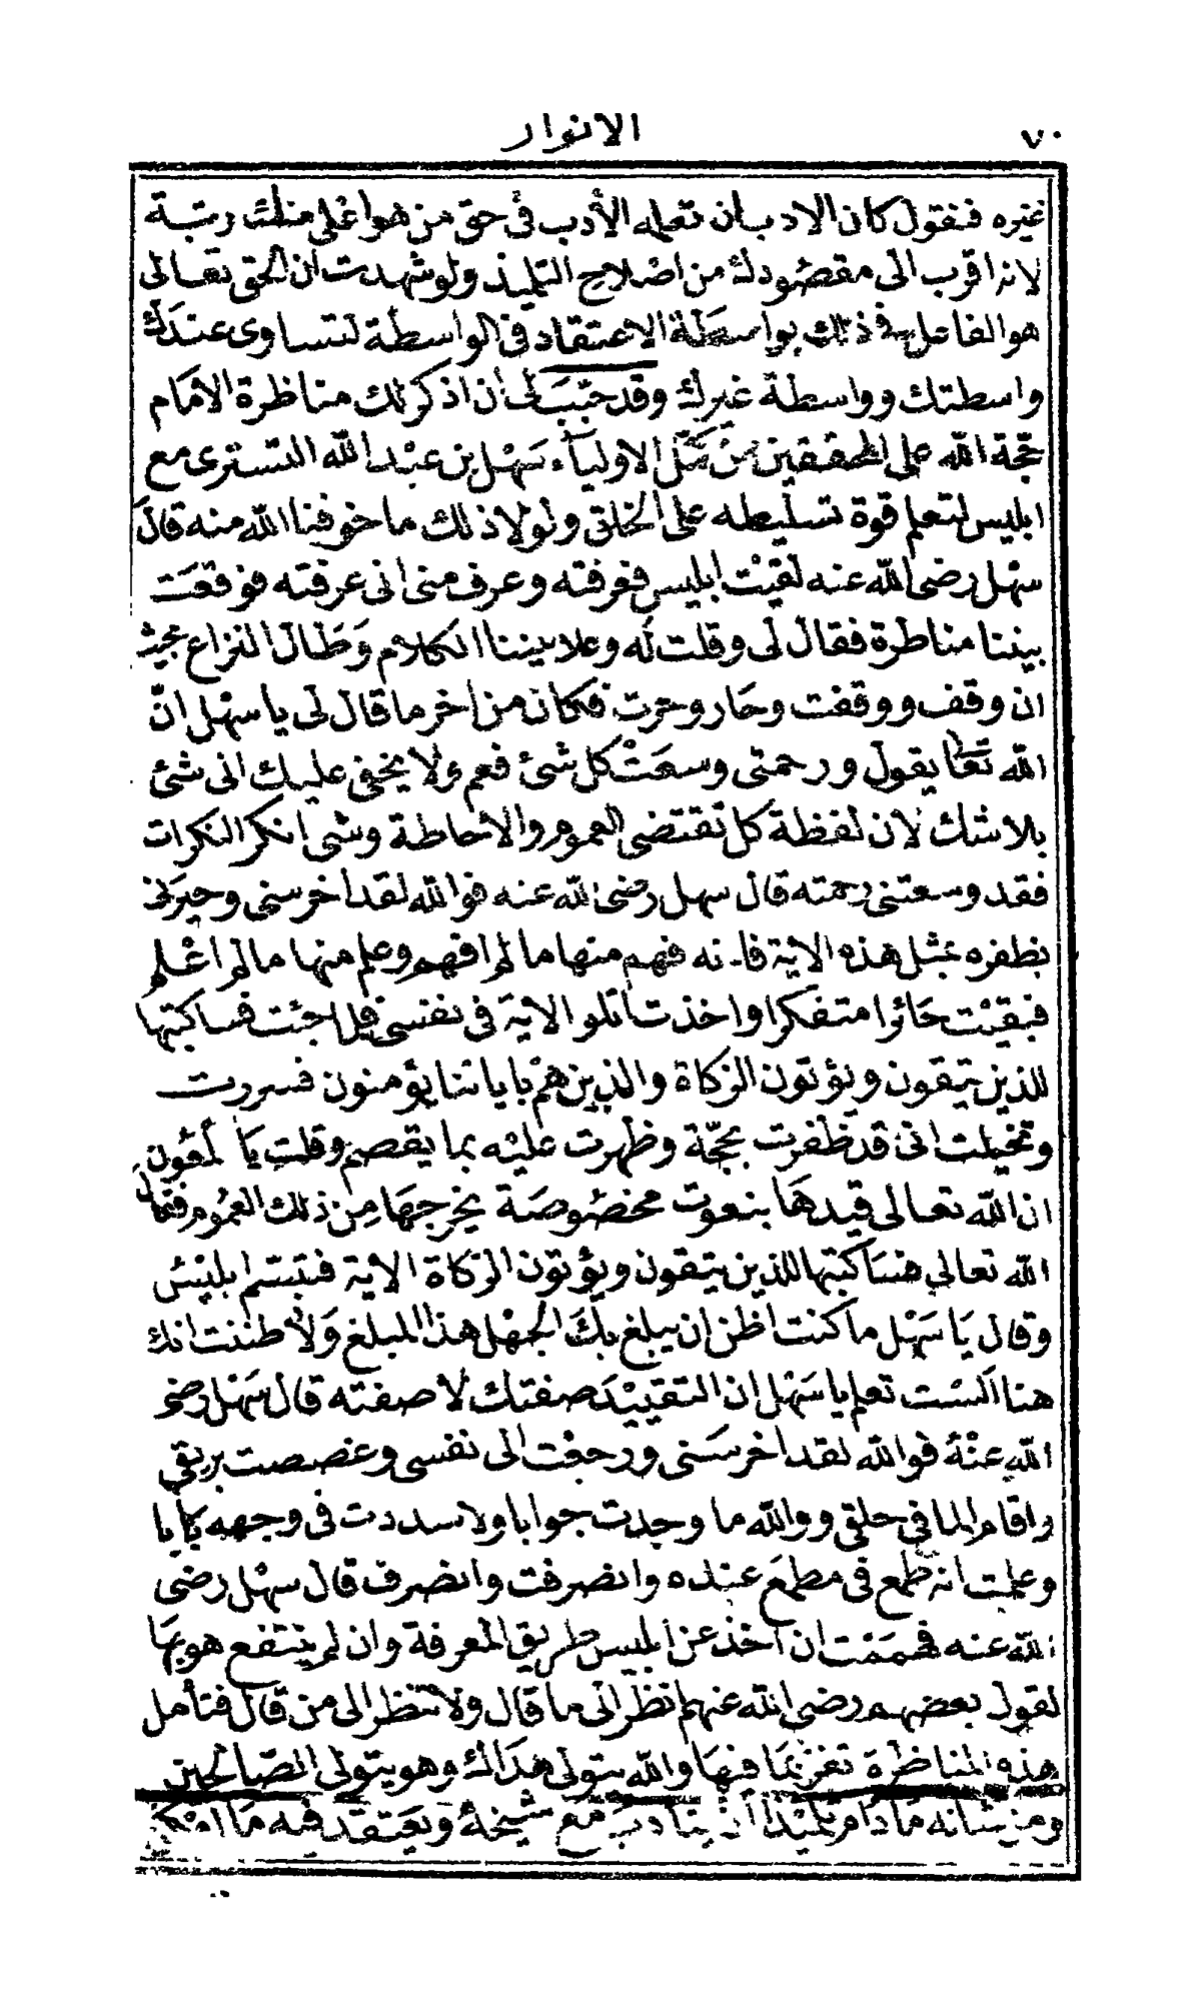 ٧٠
الانوار
غيره فنقول كان الادب ان تعليمه الأدب فى حق من هو اعلى منك رتبة
لانه اقرب الى مقصودك من اصلاح التلميذ ولو شهدت ان الحق تعالى
هو الفاعل فى ذلك بواسطة الاعتقاد فى الواسطة لتساوى عندك
واسطتك وواسطة غيرك وقد حبب لى أن اذكر لك مناظرة الامام
حجة الله على المحققين من كمل الاولياء سهل بن عبد الله التسترى مع
ابليس لتعلم قوة تسليطه على الخلق ولولا ذلك ما خوفنا الله منه قال
سهل رضى الله عنه لقيت ابليس فعرفته وعرف منى انى عرفته فوقعت
بيننا مناظرة فقال لى وقلت له وعلا بيننا الكلام وطال النزاع بحيث
ان وقف ووقفت وحار وحرت فكان من اخر ما قال لى يا سهل انّ
الله تعا يقول ورحمتى وسعت كل شئ فعم ولا يخفى عليك انى شئ
بلا شك لان لفظة كل تقتضى العموم والاحاطة وشى انكر النكرات
فقد وسعتنى رحمته قال سهل رضى الله عنه فوالله لقد اخرسنى وحيرنى
بظفره بمثل هذه الاية فانه فهم منها ما لم افهم وعلم منها ما لم اعلم
فبقيت حائرا متفكرا واخذت اتلو الاية فى نفسى فلما جئت فساكتبها
للذين يتقون ويؤتون الزكاة والذين هم بآياتنا يؤمنون فسررت
وتخيلت انى قد ظفرت بحجّة وظهرت عليه بما يقصم وقلت يا ملعون
ان الله تعالى قيدها بنعوت مخصوصة يخرجها من ذلك العموم فقال
الله تعالى فساكتبها للذين يتقون ويؤتون الزكاة الاية فتبسم ابليس
وقال يا سهل ما كنت اظن ان يبلغ بك الجهل هذا المبلغ ولا ظننت انك
هنا ألست تعلم يا سهل ان التقييد صفتك لا صفته قال سهل رضى
الله عنه فوالله لقد اخرسنى ورجعت الى نفسى وغصصت بريقى
واقام الما فى حلقى ووالله ما وجدت جوابا ولا سددت فى وجهه بابا
وعلمت انه طمع فى مطمع عنده وانصرفت وانصرف قال سهل رضى
الله عنه فهممت ان آخذ عن ابليس طريق المعرفة وان لم ينتفع هو بها
لقول بعضهم رضى الله عنهم انظر الى ما قال ولا تنظر الى من قال فتأمل
هذه المناظرة تفز بما فيها والله يتولى هداك وهو يتولى الصّالحين
ومن شانه ما دام تلميذا أن يتادب مع شيخه ويعتقد فيه ما امكن